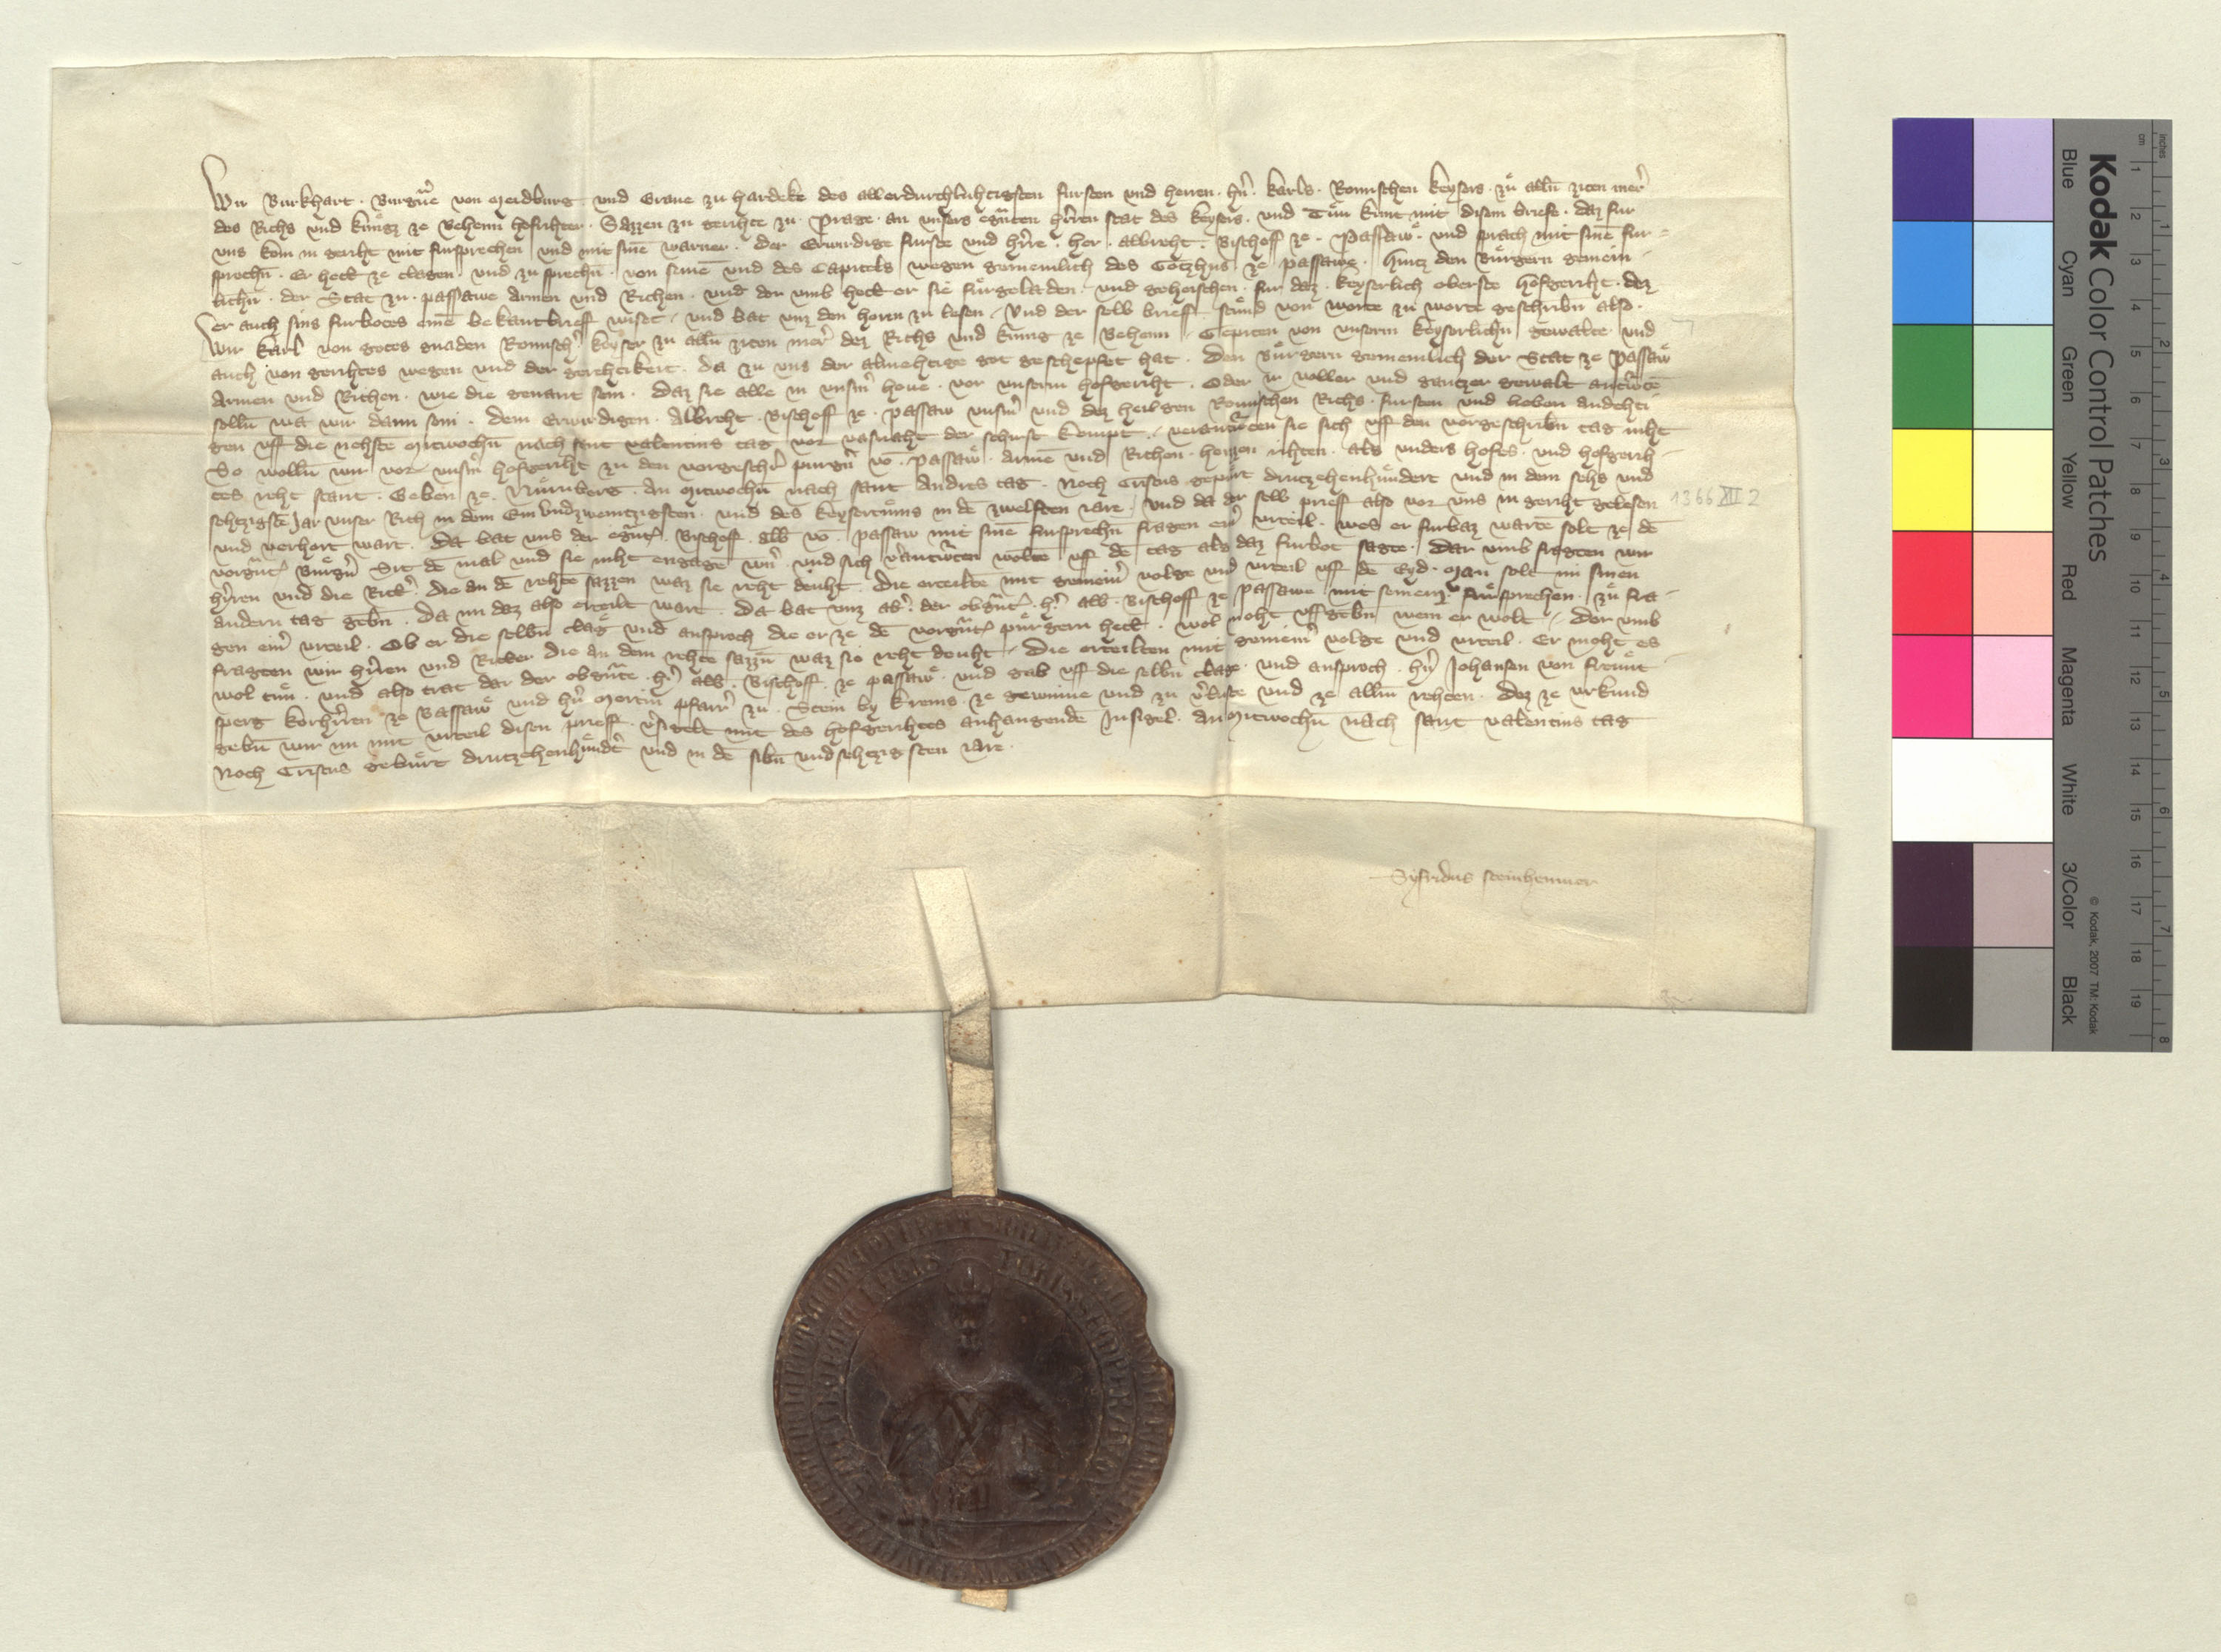 Wir Burkhart · Burgg̃ue von Meidburg und Graue zu Hardeke des allerdurchluhtigsten fursten und herren · hn̄ · Karls · Romischen keysers · zů alln̄ ziten mer̄
des Richs und kůngz ze Behemi hofrihter · Sazzen zu gerihte zu · Prage · an unsers egn̄ten hr̄ren stat des keysers · und Tůn kunt mit disem briefe · daz fur
uns kom in geriht mit fursprechen und mit sinē warner · der Erwirdige furste und hr̄re · her · Albreht · Bischoff ze · Passaẘ · und sprach mit sinē fur=
sprechn̄ · Er hett ze clagen und zu sprechn̄ · von seinē und des Capitels wegen gemeinlich des Gotzhus ze passawe · hintz den Bůrgern gemein=
lichn̄ · der Stat zu · passawe Armen und Richen · und dor umb hett er sie fůrgeladen · und geheischen · fur daz · keyserlich oberste hofgeriht · dez
er auch sins furbotes einē bekantbrieff wiset · und bat unz den horen zu lesen · Und der selb brieff stůnd von worte zu worte geschribn̄ also ·
Wir Karl von gotes gnaden Romisch̄ keyser zu alln̄ ziten mer̄ dez Richs und kunig ze Behemi · Gepieten von unserm keyserlichn̄ gewalte · und
auch von gerihtes wegen und der gerehtikeit · da zu uns der almehtige got geschepfet hat · den Bůrgern gemeinlich der Stat ze Passaẘ
Armen und Richen · wie die genant sein · daz sie alle in unsm̄ houe · vor unserm hofgeriht · Oder ir voller und gantzer gewalt antw̄tē
solln̄ wa wir dann sein · dem Erwirdigen · Albreht · Bischoff ze · passaw unsm̄ und dez heilgen Romischen Richs · fursten und lieben andehti=
gen uff die nehste Mitwochn̄ nach sent valentins tag vor vasnaht der schirst kompt · verantw̄ten sie sich uff den vorgeschribn̄ tag niht
So welln̄ wir vor unsm̄ hofgeriht zu den vorgeschr̄ purgn̄ vō · passaẘ · Armē und Richen · heizzen rihten · als unders hofes · und hofgerih=
tes reht stant · Geben ze · Nůrnberg · An Mitwochn̄ nach sant Andres tag · Noch Cristus gepůrt driutzehenhůndert und in dem sehs und
sehtzigstē Jar unser Rich in dem Ein undzweintzigsten · und des keysertůms in dē zwelften iare · und da der selb prieff also vor uns in geriht gelesen
und verhort wart · Da bat uns der egn̄t · Bischoff · Alb vō · passaw mit sinē fursprechn̄ fragen ein̄ urteil · wes er furbaz warte solt ze dē
vorgn̄t Bůrgn̄ Sit dē mal und sie niht engagē wn̄ · und sich v̄antw̄ten woltē uff dē tag als daz furbot sagte · Dar umb fragten wir
hr̄ren und die Ritt̄ · die an dē rehte sazzen waz sie reht deuht · die erteiltē mit gemein̄ volge und urteil uff dē Eyd · Man solt im sinen
andern tag gebn̄ · Da im daz also erteilt wart · Da bat unz ab̄ · der obgn̄t · h̄ · Alb · Bischoff ze passawe mit seinem fůrsprechen · zů fra=
gen ein̄ urteil · Ob er die selbn̄ clag̊ und ansproch die er ze dē vorgn̄t půrgern hett · wol moht uffgebn̄ wem er wolt · Dor umb
fragten wir hr̄ren und Ritter die an dem rehte sazzn̄ waz sie reht deuht · Die erteilten mit gemein̄ volge und urteil · Er moht es
wol tůn · und also trat dar der obgn̄te · h̄ · Alb · Bischoff · ze passaẘ · und gab uff die selbn̄ clage · und ansproch · hn̄ Johansen von freůnt=
sperg korhr̄ren ze Bassaẘ und hn̄ Mertin pfarr̄ zu · Stein by Krems · ze gewinne und zu v̄luste und ze allm̄ rehten · dez ze urkund
gebn̄ wir im mit urteil disen prieff · v̄sigelt mit des hofgerihtes anhangendē Insigel · An Mitwochn̄ nach sant valentins tag
Noch Cristus gebůrt driutzehenhůndt̄ und in dē sibn̄ undsehtzigsten iare ·
1366 XII 2
Syfridus steinhemmer
Kodak Color Control Patches
Blue Cyan Green Yellow Red Magenta White 3/Color Black
© Kodak, 2007 TM: Kodak
cm 1 2 3 4 5 6 7 8 9 10 11 12 13 14 15 16 17 18 19
inches 1 2 3 4 5 6 7 8